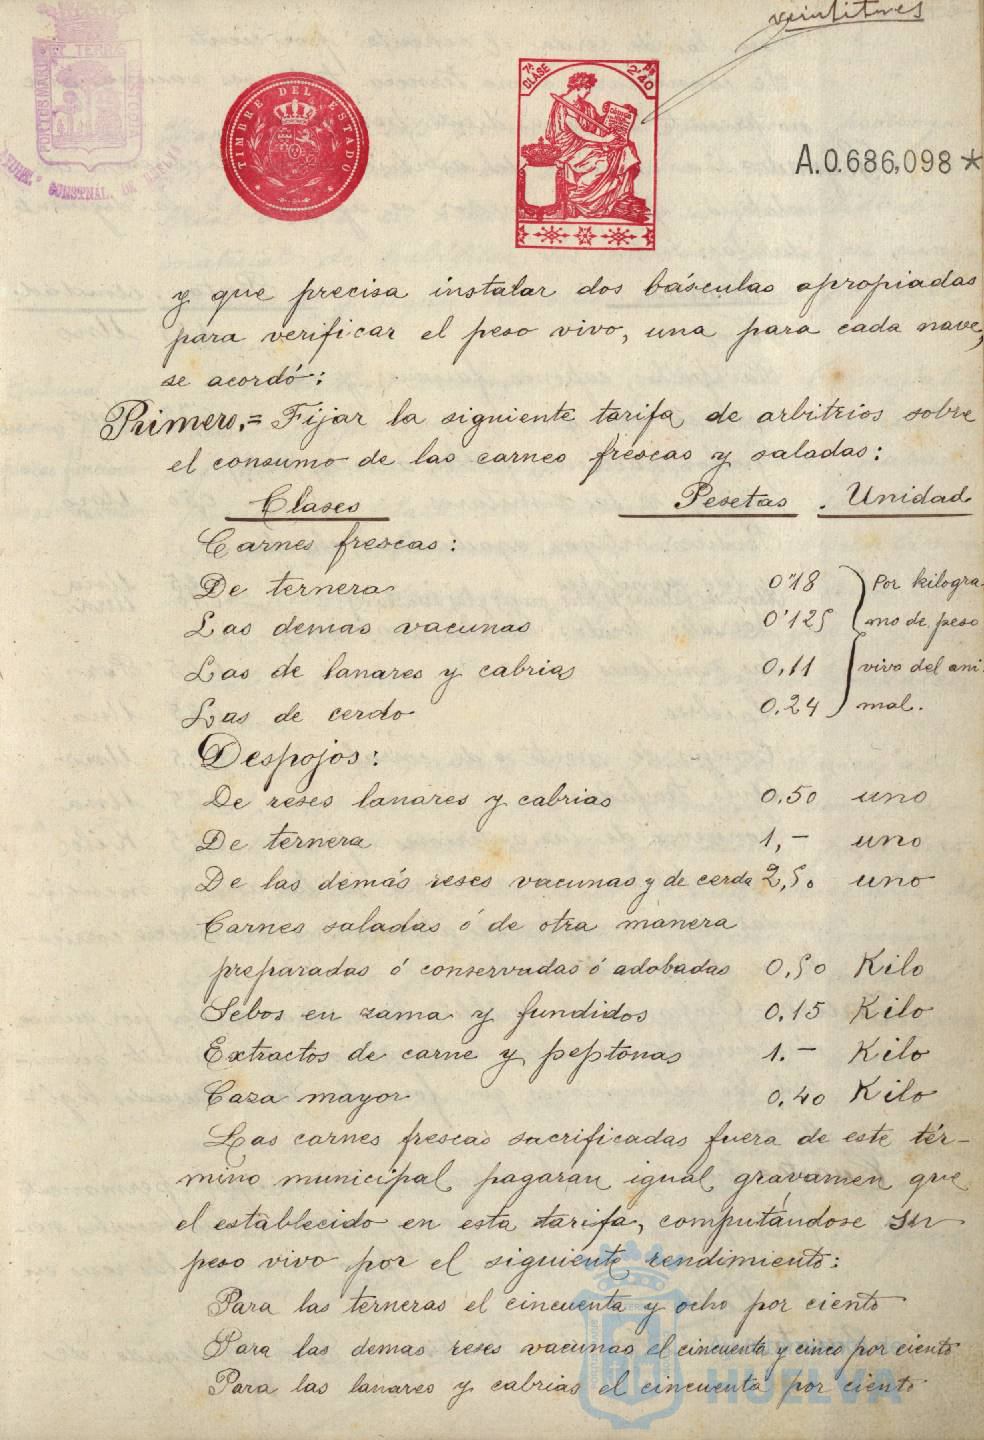 veintitres
PORTUS MARIS ET TERRÆ CUSTODIA
TIMBRE DEL ESTADO
7ª CLASE
2'40
A.0.686,098*
y que precisa instalar dos básculas apropiadas
para verificar el peso vivo, una para cada nave,
se acordó:
Primero.= Fijar la siguiente tarifa de arbitrios sobre
el consumo de las carnes frescas y saladas:
Clases Pesetas . Unidad
Carnes frescas:
De ternera 0"18 Por kilogra-
Las demas vacunas 0'125 mo de peso
Las de lanares y cabrias 0,11 vivo del ani-
Las de cerdo 0.24 mal.
Despojos:
De reses lanares y cabrias 0.50 uno
De ternera 1,- uno
De las demás reses vacunas y de cerda 2,50 uno
Carnes saladas ó de otra manera
preparadas ó conservadas ó adobadas 0,50 Kilo
Sebos en rama y fundidos 0.15 Kilo
Extractos de carne y peptonas 1.- Kilo
Caza mayor 0,40 Kilo
Las carnes frescas sacrificadas fuera de este tér-
mino municipal pagaran igual gravamen que
el establecido en esta tarifa, computándose su
peso vivo por el siguiente rendimiento:
Para las terneras el cincuenta y ocho por ciento
Para las demas reses vacunas el cincuenta y cinco por ciento
Para las lanares y cabrias el cincuenta por ciento
Ayuntamiento de
HUELVA